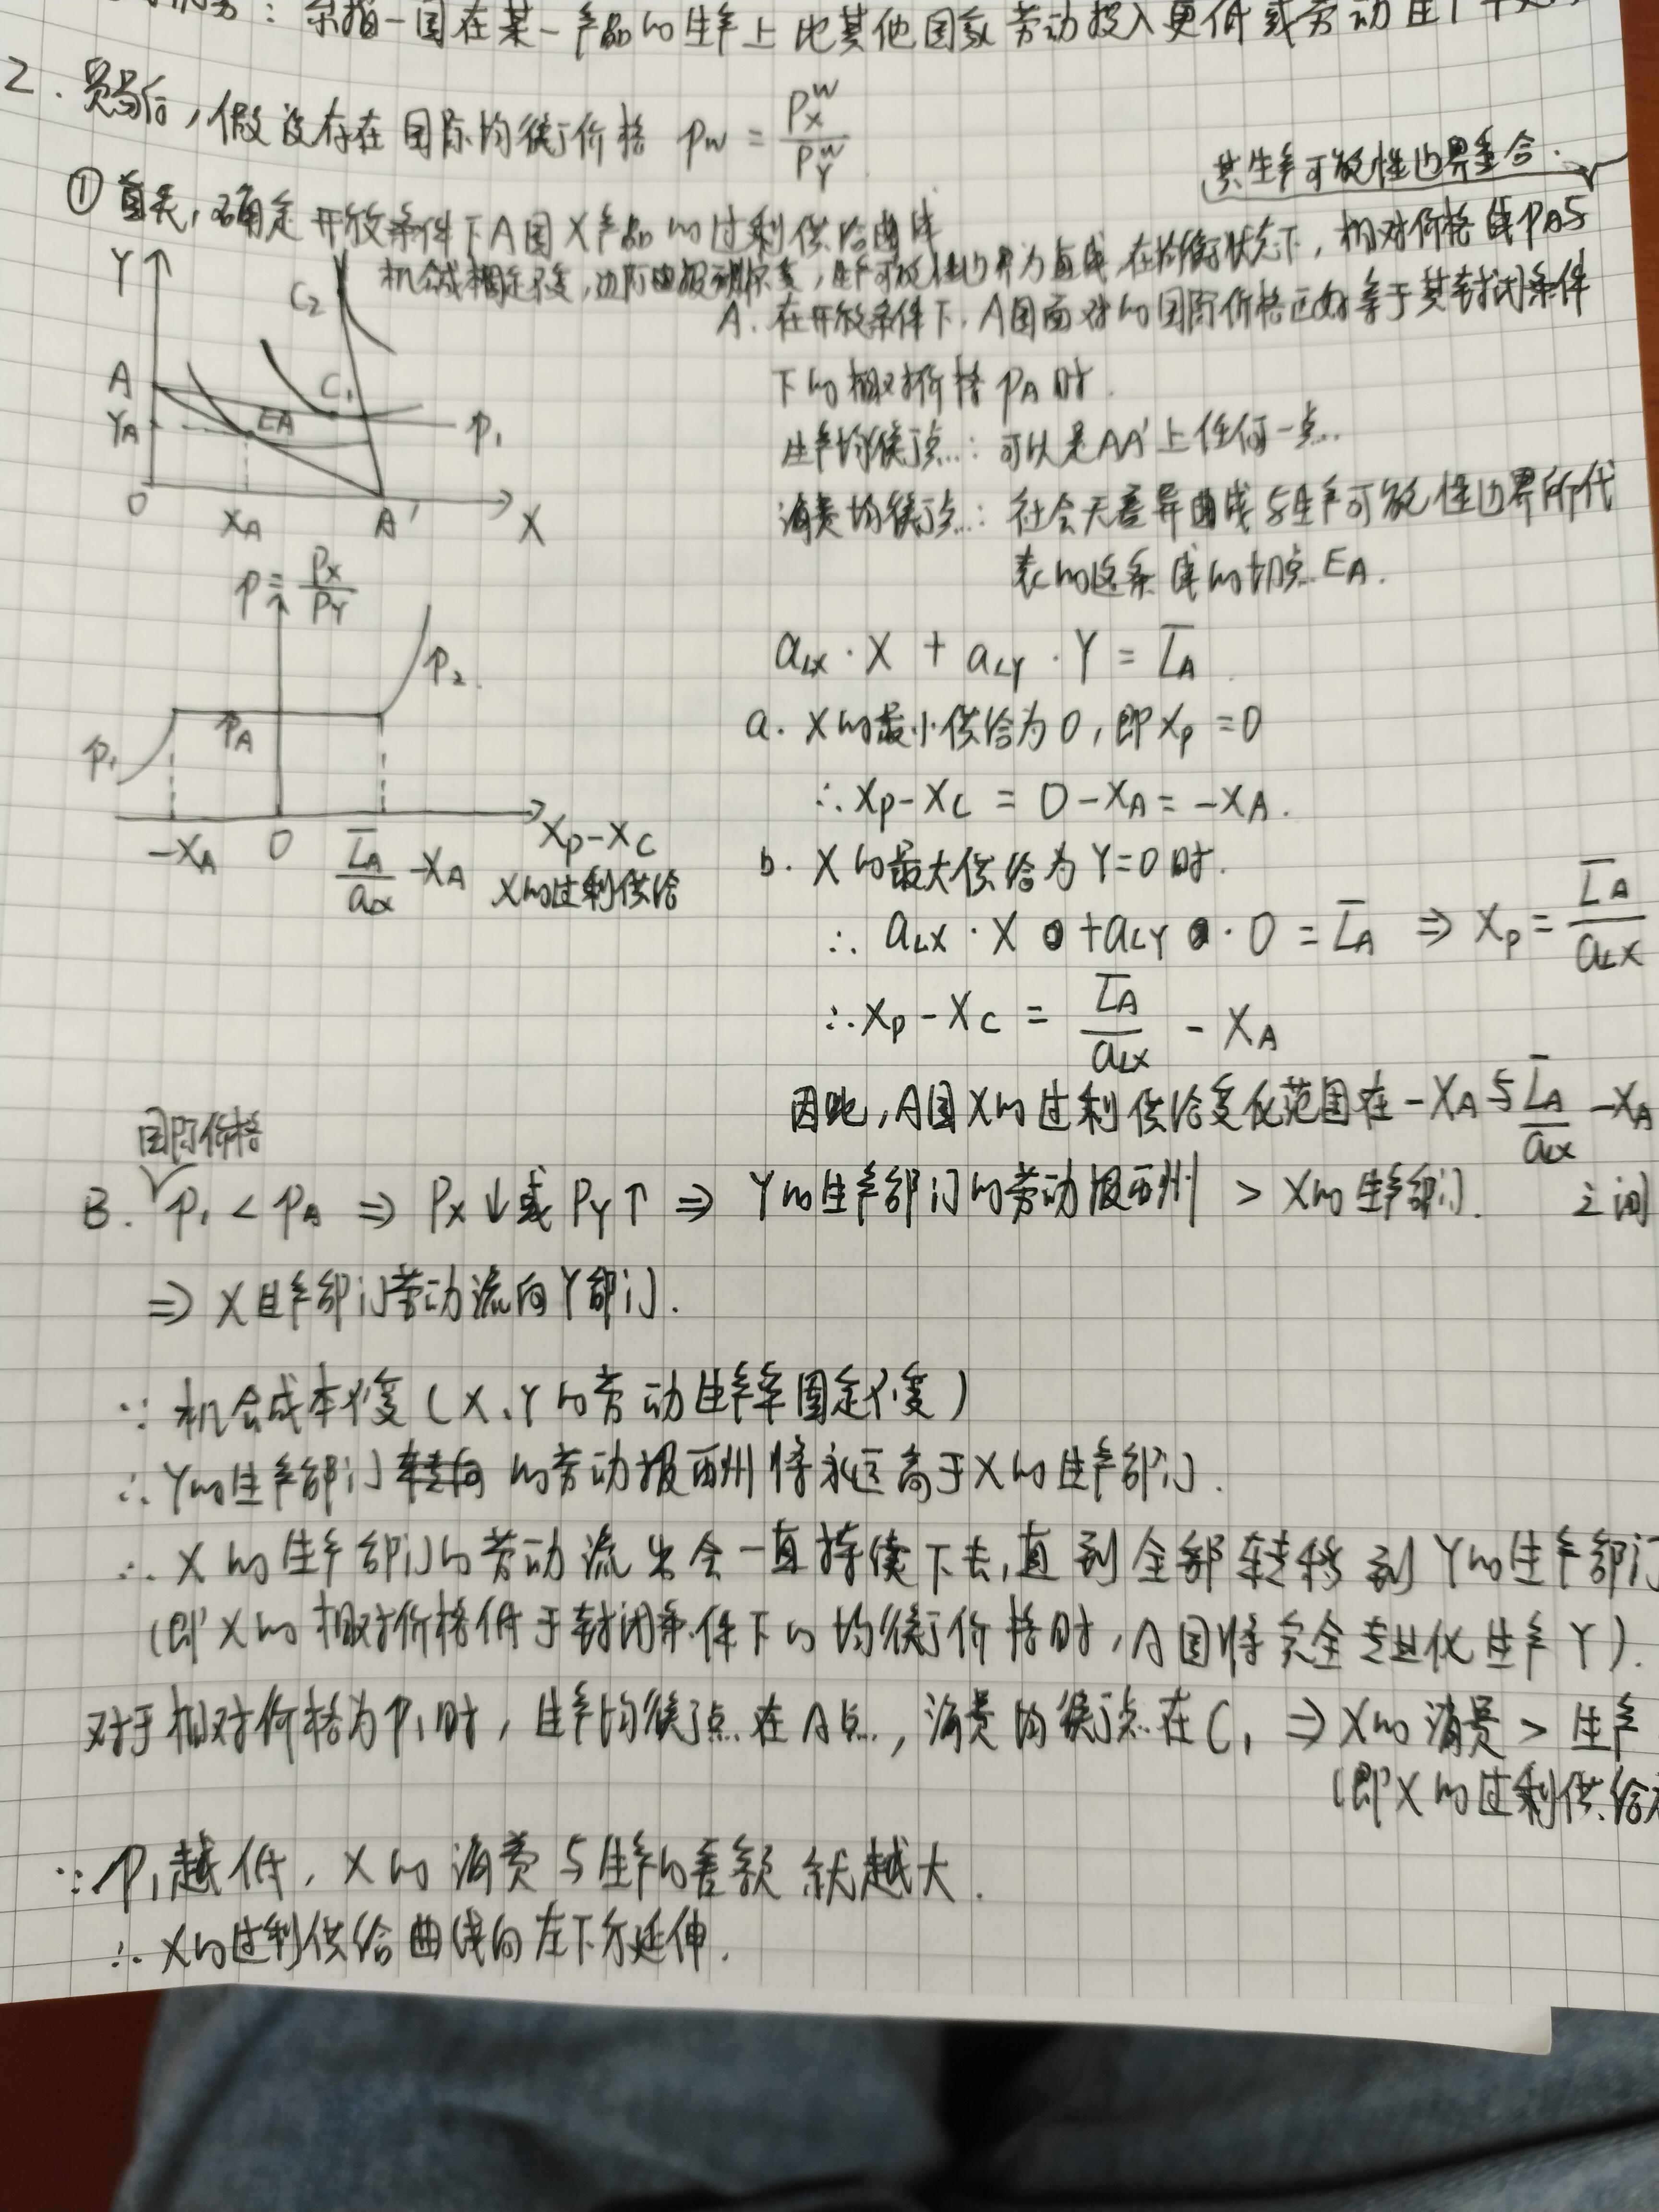 ：系指一国在某一产品的生产上比其他国家劳动投入更低或劳动生
2. 贸易后，假设存在国际均衡价格 pw = P_X^W / P_Y^W
① 首先，确定开放条件下A国X产品的过剩供给曲线
其生产可能性边界重合.
机会成本固定不变，边际报酬不变，生产可能性边界为直线，在均衡状态下，相对价格线PA与
A. 在开放条件下，A国面对的国际价格正好等于其封闭条件
下的相对价格 pA 时.
生产均衡点：可以是AA'上任何一点.
消费均衡点：社会无差异曲线与生产可能性边界所代
表的这条线的切点 EA.
Y
C2
A
C1
YA
EA
p1
O
XA
A'
X
p = Px/PY
p2
pA
p1
-XA 0 L̄A/aLX - XA
Xp-Xc
X的过剩供给
aLX · X + aLY · Y = L̄A
a. X的最小供给为0，即Xp = 0
∴ Xp-Xc = 0-XA = -XA.
b. X的最大供给为Y=0时.
∴ aLX · X + aLY · 0 = L̄A ⇒ Xp = L̄A/aLX
∴ Xp - Xc = L̄A/aLX - XA
因此，A国X的过剩供给变化范围在 -XA与 L̄A/aLX - XA
之间
国际价格
B. p1 < pA ⇒ Px↓或 PY↑ ⇒ Y的生产部门的劳动报酬 > X的生产部门.
⇒ X生产部门劳动流向Y部门.
∵ 机会成本不变（X、Y的劳动生产率固定不变）
∴ Y的生产部门的劳动报酬将永远高于X的生产部门.
∴ X的生产部门的劳动流出会一直持续下去，直到全部转移到Y的生产部门
（即X的相对价格低于封闭条件下的均衡价格时，A国将完全专业化生产Y）.
对于相对价格为p1时，生产均衡点在A点，消费均衡点在C1 ⇒ X的消费 > 生产
（即X的过剩供给
∵ p1越低，X的消费与生产的差额就越大.
∴ X的过剩供给曲线向左下方延伸.